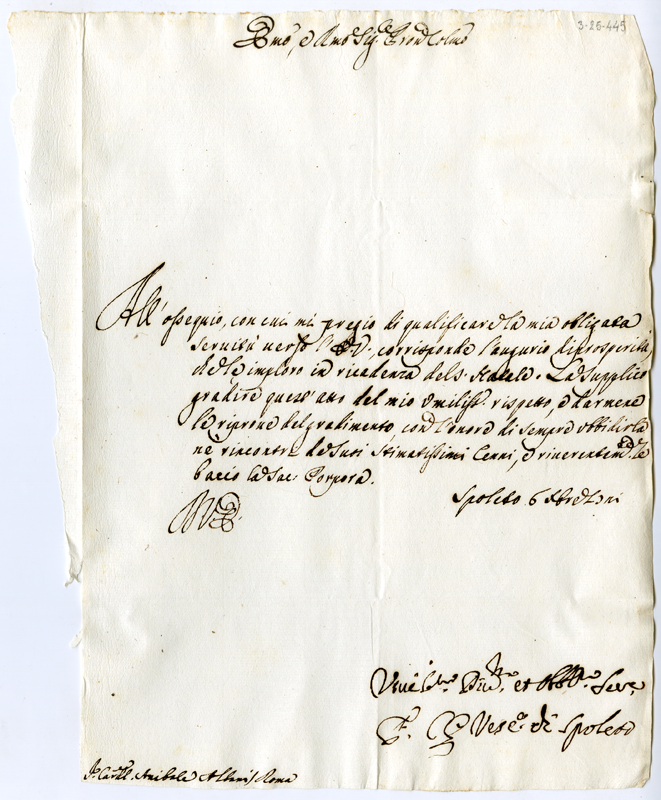 3-26-445
Em̃o, e Rmo Sig.r Pron Colmo
All' ossequio, con cui mi pregio di qualificare la mia obligata
servitù verso l'E.V., corrisponde l'augurio di prosperità,
che le imploro in ricadenza del S. Natale. La supplico
gradire quest' atto del mio umiliss. rispetto, e darmene
le riprove del gradimento con l'onore di sempre obbidirla
nè rincontri de suoi stimatissimi Cenni, e riverentem.te le
bacio la Sac. Porpora.
Spoleto 6 Xbre
Di V. E.
Um̃o Divõ, et obb̃mo Serv.
Vesc.o di Spoleto
Sr Card.l Anibale Albani / Roma